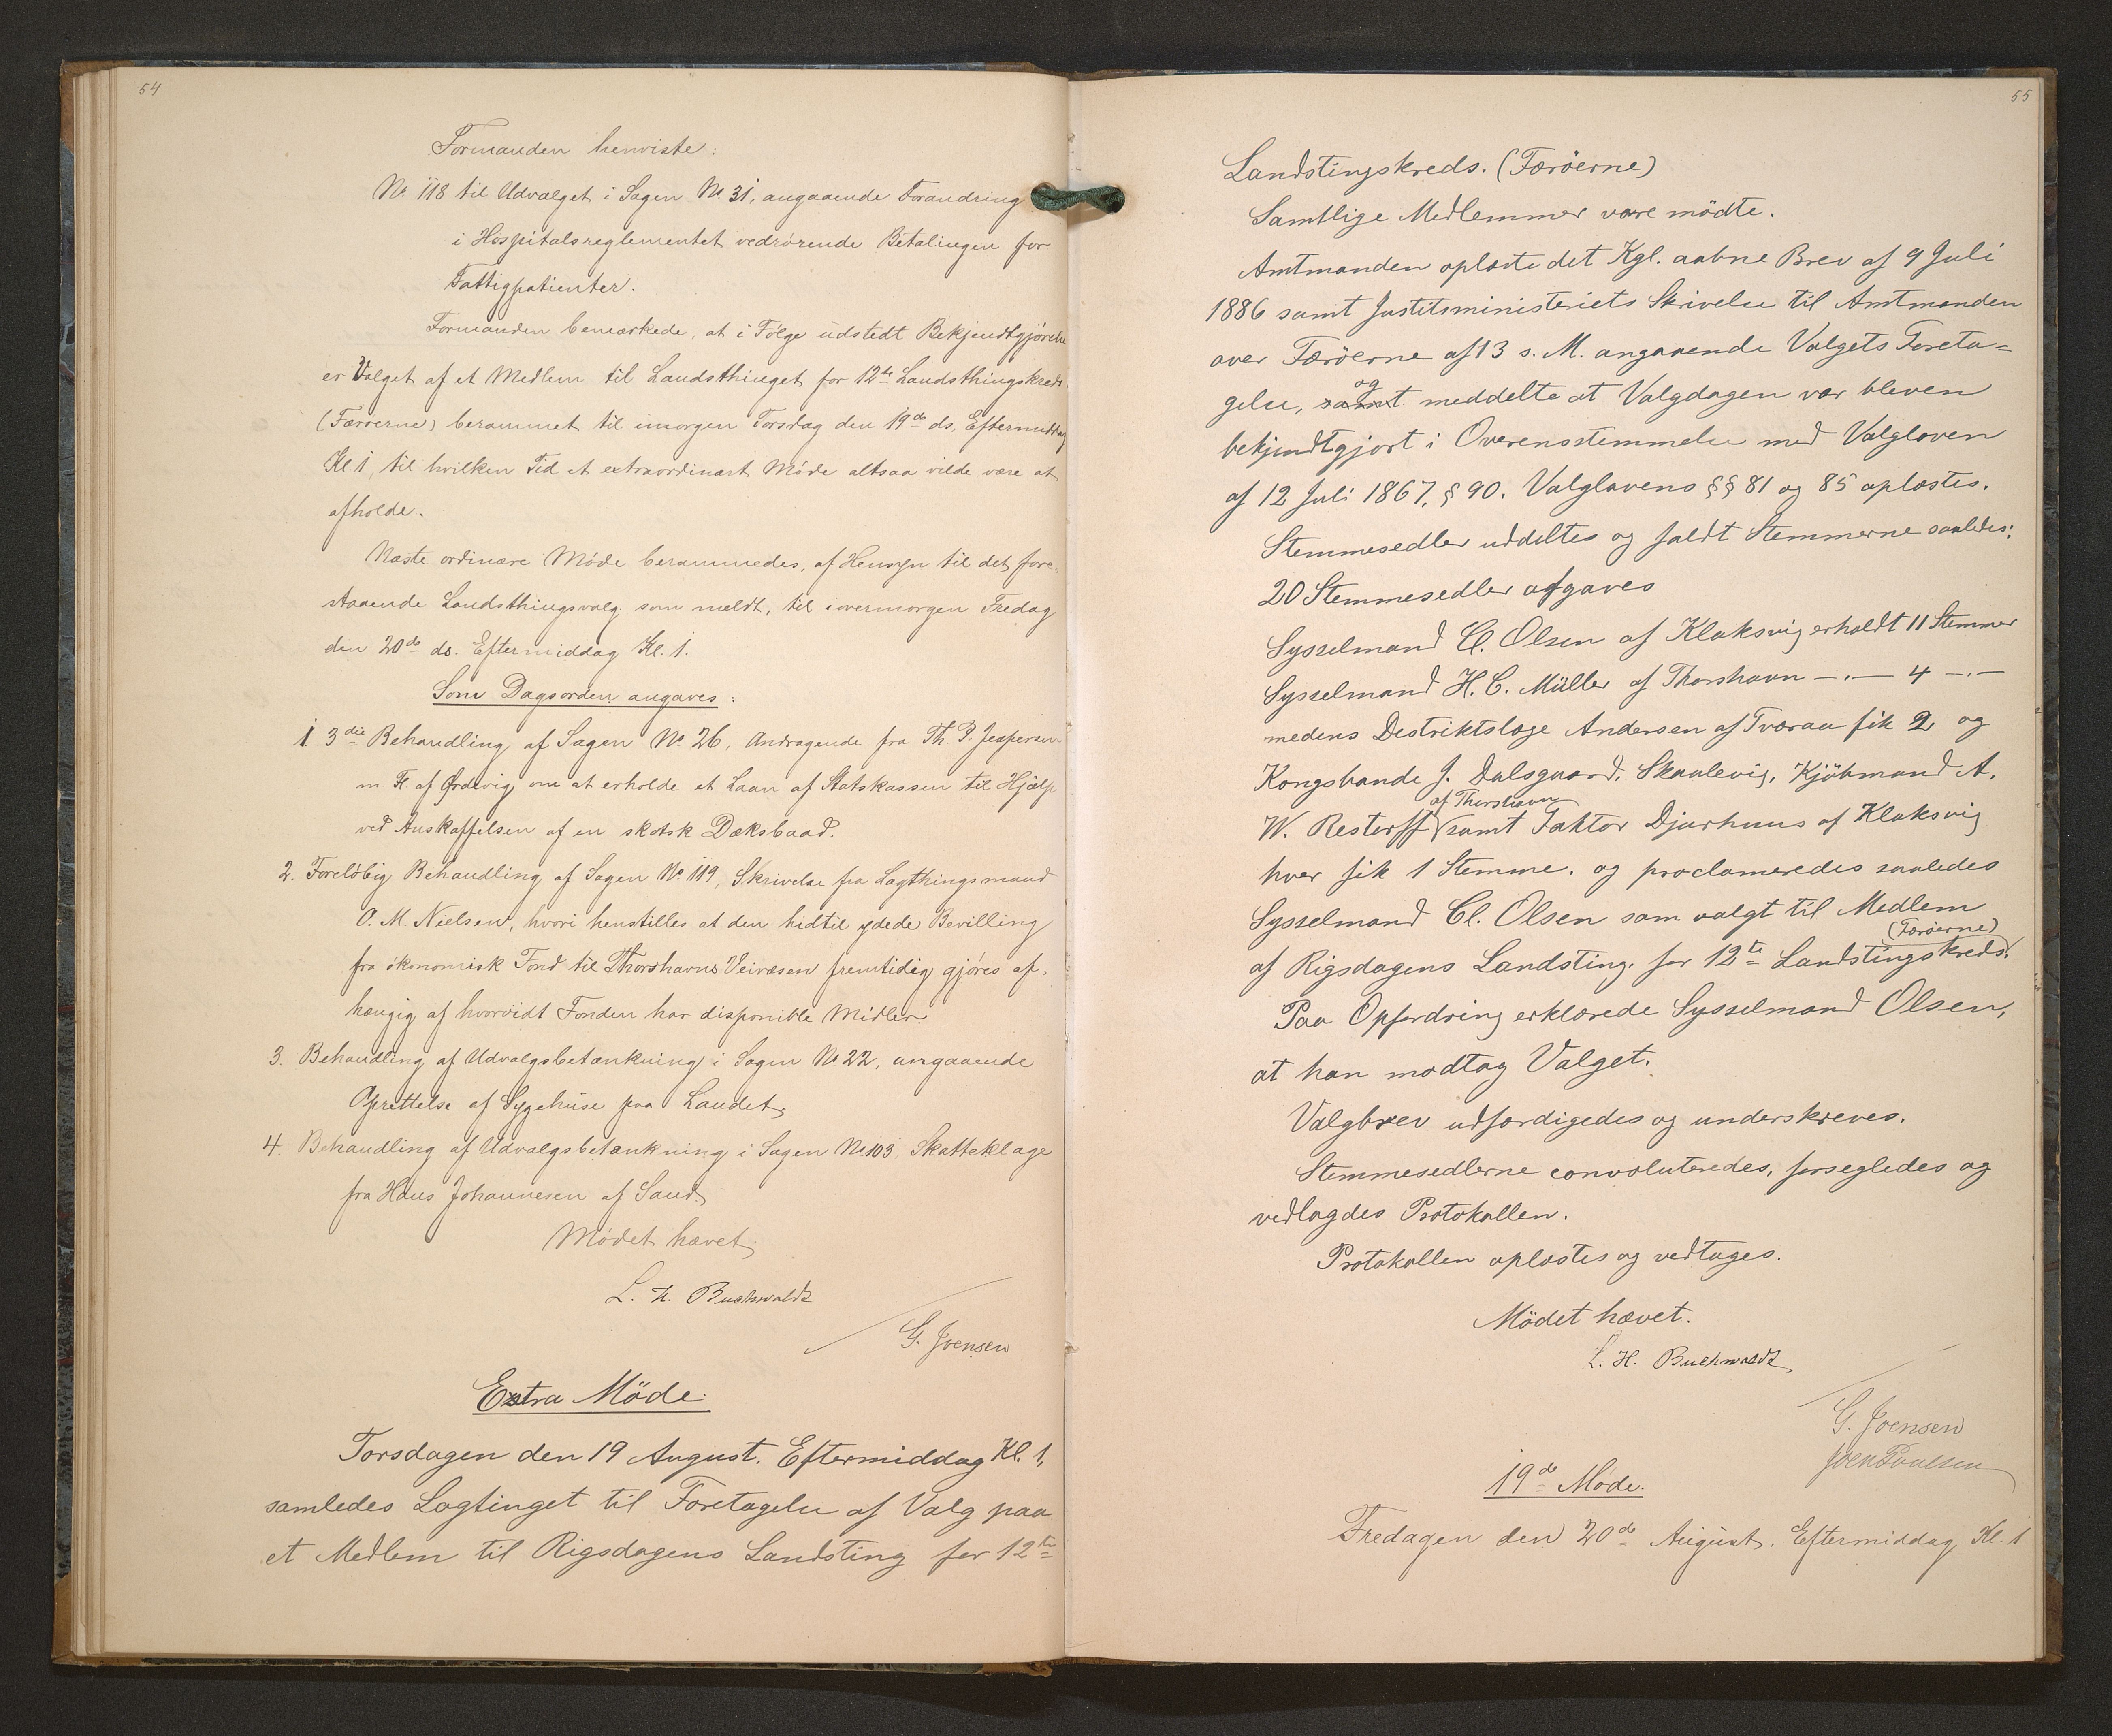 54
Formanden henviste:
No. 118 til Udvalget i Sagen No. 31, angaaende Forandring
i Hospitalsreglementet vedrørende Betalingen for
Fattigpatienter.
Formanden bemærkede, at i Følge udstedt Bekjendtgjørelse
er Valget af et Medlem til Landsthinget for 12te Landsthingskreds
(Færøerne) berammet til imorgen Torsdag den 19de ds, Eftermiddag
Kl. 1, til hvilken Tid et extraordinært Møde altsaa vilde være at
afholde.
Næste ordinære Møde berammedes, af Hensyn til det fore-
staaende Landsthingsvalg som meldt, til iovermorgen Fredag
den 20de ds. Eftermiddag Kl. 1.
Som Dagsorden angaves:
1. 3die Behandling af Sagen No. 26, Andragende fra Th. P. Jespersen
m. Fl. af Ørdevig om at erholde et Laan af Statskassen til Hjælp
ved Anskaffelsen af en skotsk Dæksbaad.
2. Foreløbig Behandling af Sagen No. 119, Skrivelse fra Lagthingsmand
O. M. Nielsen, hvori henstilles at den hidtil ydede Bevilling
fra økonomisk Fond til Thorshavns Veivæsen fremtidig gjøres af-
hængig af hvorvidt Fonden har disponible Midler.
3. Behandling af Udvalgsbetænkning i Sagen No. 22, angaaende
Oprettelse af Sygehuse paa Landet,
4. Behandling af Udvalgsbetænkning i Sagen No. 103, Skatteklage
fra Hans Johannesen af Sand,
Mødet hævet,
L. H. Buchwaldt
G. Joensen
Extra Möde.
Torsdagen den 19 August. Eftermiddag Kl. 1,
samledes Lagtinget til Foretagelse af Valg paa
et Medlem til Rigsdagens Landsting for 12te
55
Landstingskreds. (Færöerne)
Samtlige Medlemmer vare mödte.
Amtmanden oplæste det Kgl. aabne Brev af 9 Juli
1886 samt Justitsministeriets Skrivelse til Amtmanden
over Færöerne af 13 s. M. angaaende Valgets Foreta=
og
gelse, samt meddelte at Valgdagen var bleven
bekjendtgjort i Overensstemmelse med Valgloven
af 12 Juli 1867, § 90. Valglovens §§ 81 og 85 oplæstes.
Stemmesedler uddeltes og faldt Stemmerne saaledes:
20 Stemmesedler afgaves
Sysselmand Cl. Olsen af Klaksvig erholdt 11 Stemmer
Sysselmand H. C. Müller af Thorshavn —.— 4 —.—
medens Destriktslæge Andersen af Tveraa fik 2 og
Kongsbonde J. Dalsgaard, Skaalevig, Kjöbmand A.
af Thorshavn
W. Restorff samt Faktor Djurhuus af Klaksvig
hver fik 1 Stemme. og proclameredes saaledes
Sysselmand Cl. Olsen som valgt til Medlem
(Færöerne)
af Rigsdagens Landsting. for 12te Landstingskreds.
Paa Opfordring erklærede Sysselmand Olsen,
at han modtog Valget.
Valgbrev udfærdigedes og underskreves.
Stemmesedlerne convoluteredes, forsegledes og
vedlagdes Protokollen.
Protokollen oplæstes og vedtoges.
Mödet hævet.
L. H. Buchwaldt
G. Joensen
Joen Poulsen
19de Møde.
Fredagen den 20de August. Eftermiddag Kl. 1